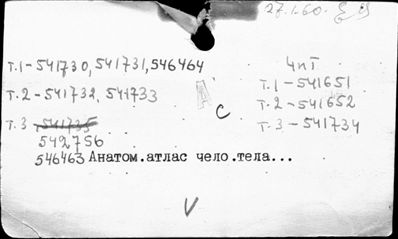 27.1.60.
т.1-541730, 541731, 546464
т.2-541732, 541733
т.3 541735
542756
546463 Анатом.атлас чело.тела...
ЧиТ
т.1-541651
т.2-541652
т.3-541734
С
V